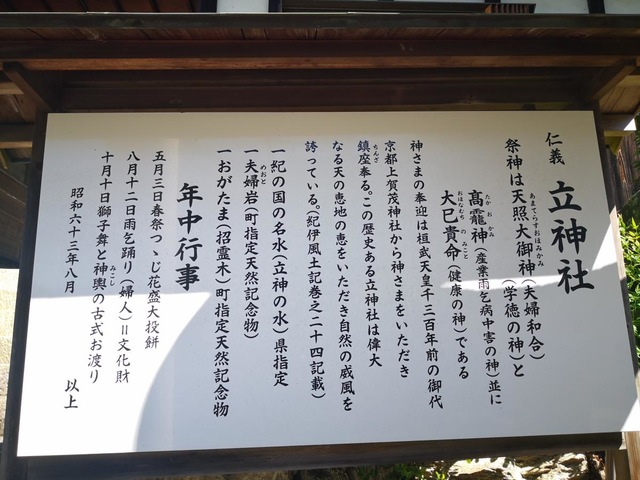 仁義 立神社
祭神は天照大御神(夫婦和合)
あまてらすおほみかみ
(学徳の神)と
高龗神(産業雨乞病中害の神)並に
たかおかみ
大巳貴命(健康の神)である
おほなむちのみこと
神さまの奉迎は桓武天皇千三百年前の御代
京都上賀茂神社から神さまをいただき
鎮座奉る。この歴史ある立神社は偉大
ちんざ
なる天の恵地の恵をいただき自然の威風を
誇っている。(紀伊風土記巻之二十四記載)
一紀の国の名水(立神の水)県指定
一夫婦岩(町指定天然記念物)
めおと
一おがたま(招霊木)町指定天然記念物
年中行事
五月三日春祭つゝじ花盛大投餅
八月十二日雨乞踊り(婦人)=文化財
十月十日獅子舞と神輿の古式お渡り
みこし
昭和六十三年八月 以上